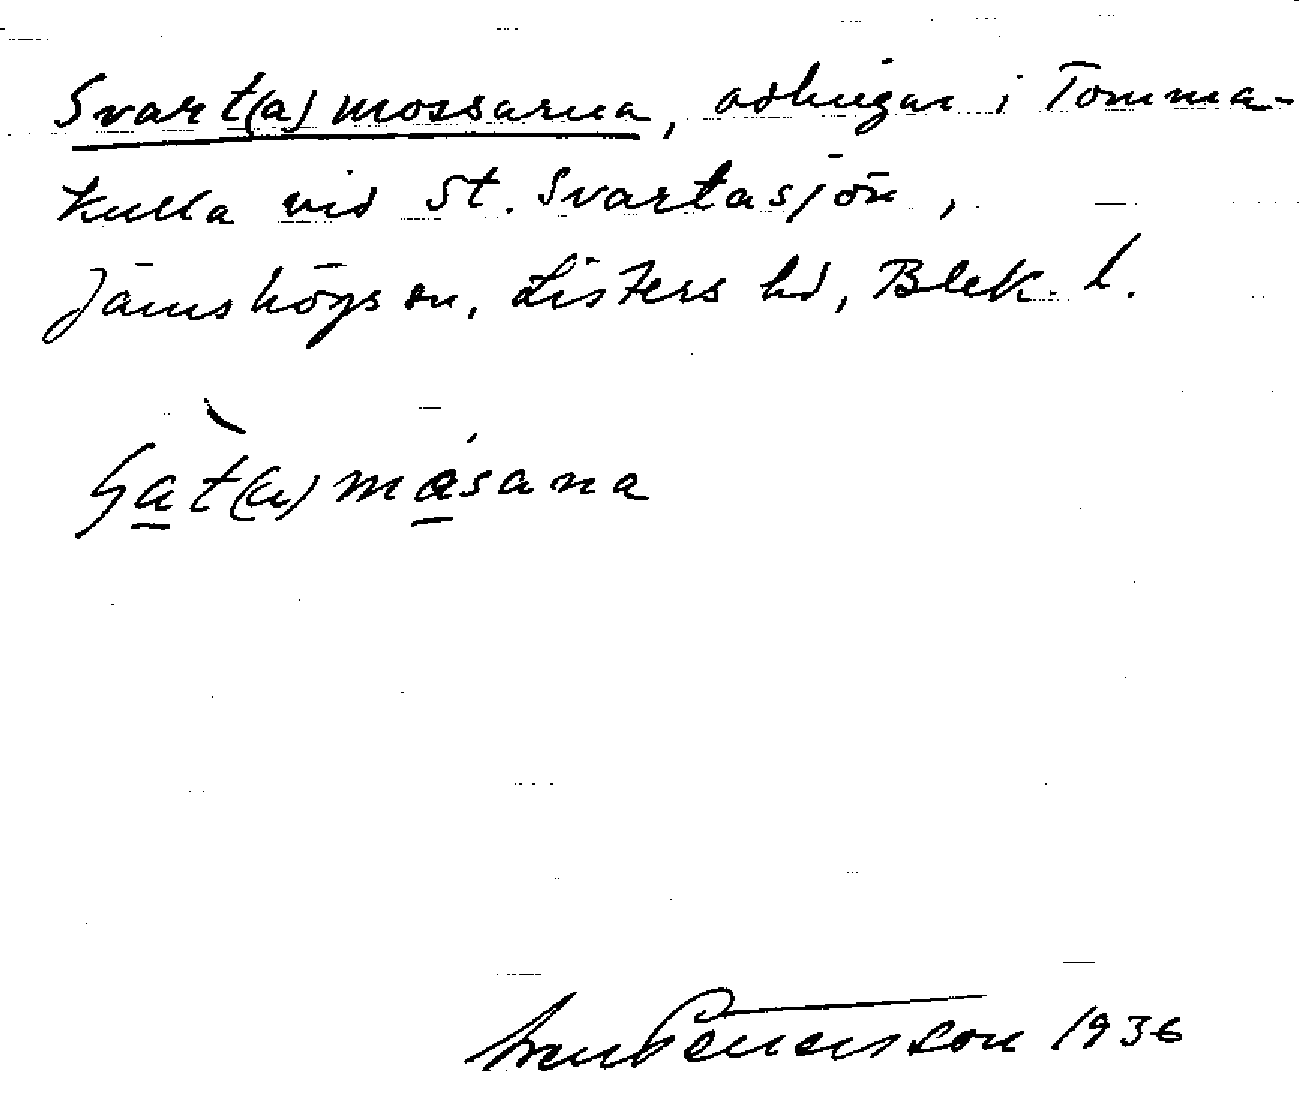 Svart(a)mossarna, odlingar i Tomma-
kulla vid St. Svartasjön,
Jämshögs sn, Listers hd, Blek. l.
1936